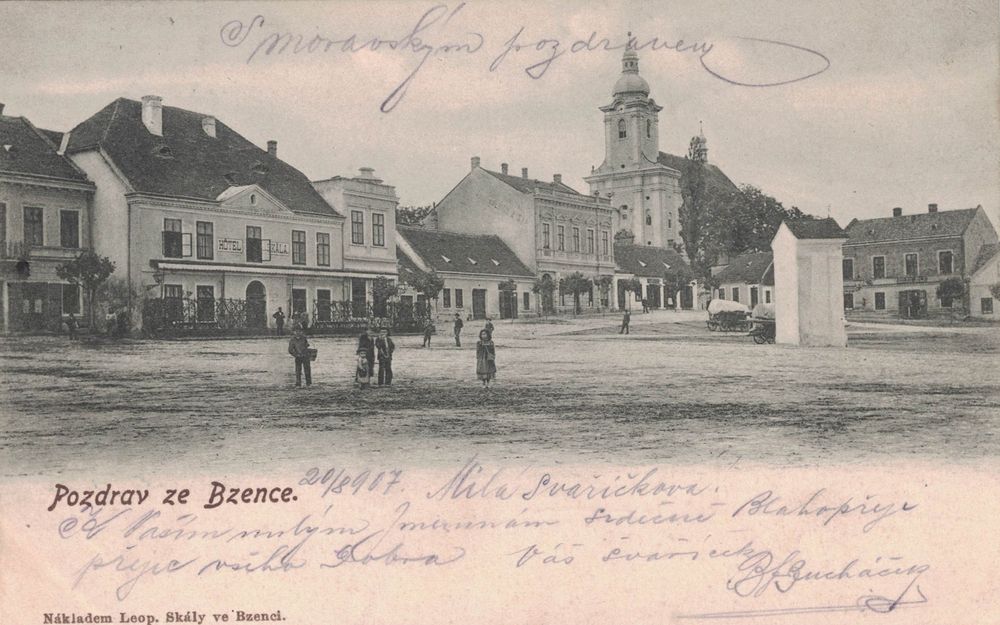 S moravským pozdravem
HÔTEL RÁLA
Pozdrav ze Bzence.
20/8 907. Milá Švaříčkova.
K Vašim milým Jmeninám srdečně Blahopřeje
přeje všeho Dobra Váš švaříček
Bucháček
Nákladem Leop. Skály ve Bzenci.